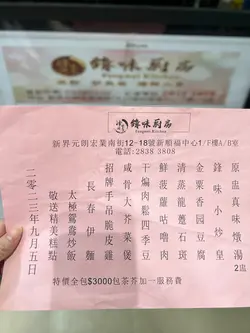 鋒味廚房
Fungmei Kitchen
新界元朗宏業南街12-18號新順福中心1/F樓A/B室
電話:2838 3808
原盅真味燉湯 2皿
鋒味小炒皇
金栗香園豆腐
清蒸龍躉
鮮菠蘿咕嚕肉
干煸肉鬆四季豆
咸骨大芥菜煲
招牌手吊脆皮雞
長春伊麵
太極鴛鴦炒飯
敬送精美糕點
二零二三年九月五日
特價全包$3000包茶芥加一服務費